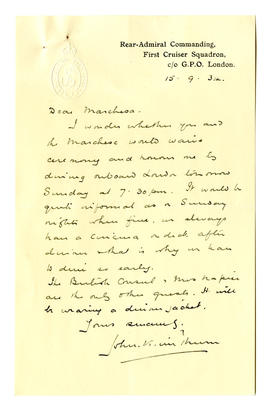 Rear-Admiral Commanding,
First Cruiser Squadron,
c/o G.P.O. London.
15. 9. 34.
Dear Marchesa.
I wonder whether you and
the Marchese would waive
ceremony and honour me by
dining onboard London tomorrow
Sunday at 7.30pm. It would be
quite informal as on Sunday
nights when fine, we always
have a cinema on deck after
dinner & that is why we have
to dine so early.
The British Consul & Mrs Napier
are the only other guests. I will
be wearing a dinner jacket.
Yours sincerely
John